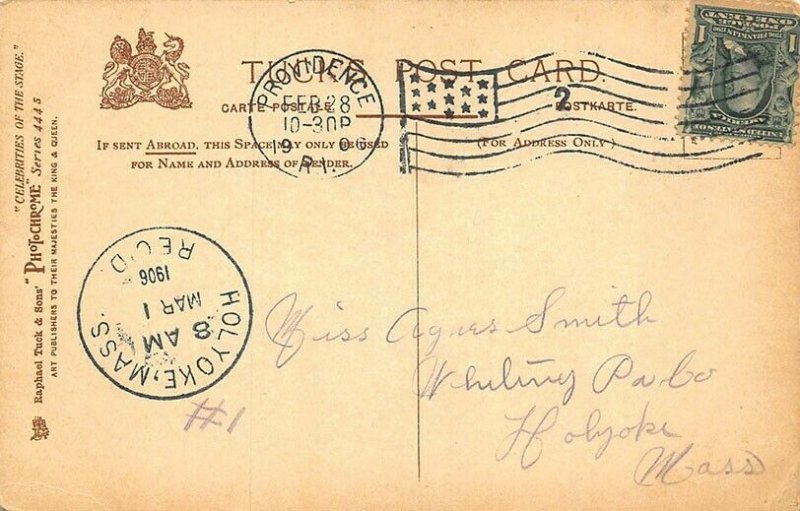 TUCK'S POST CARD.
CARTE POSTALE. POSTKARTE.
IF SENT ABROAD, THIS SPACE MAY ONLY BE USED
FOR NAME AND ADDRESS OF SENDER.
(FOR ADDRESS ONLY)
PROVIDENCE
FEB 28
10-30P
1906
R.I.
2
UNITED STATES OF AMERICA
POSTAGE
ONE CENT
1 1
"CELEBRITIES OF THE STAGE."
Raphael Tuck & Sons' "PHOTOCHROME" Series 4445
ART PUBLISHERS TO THEIR MAJESTIES THE KING & QUEEN.
HOLYOKE, MASS.
8 AM
MAR 1
1906
REC'D
#1
Miss Agnes Smith
Whiting Pa Co
Holyoke
Mass